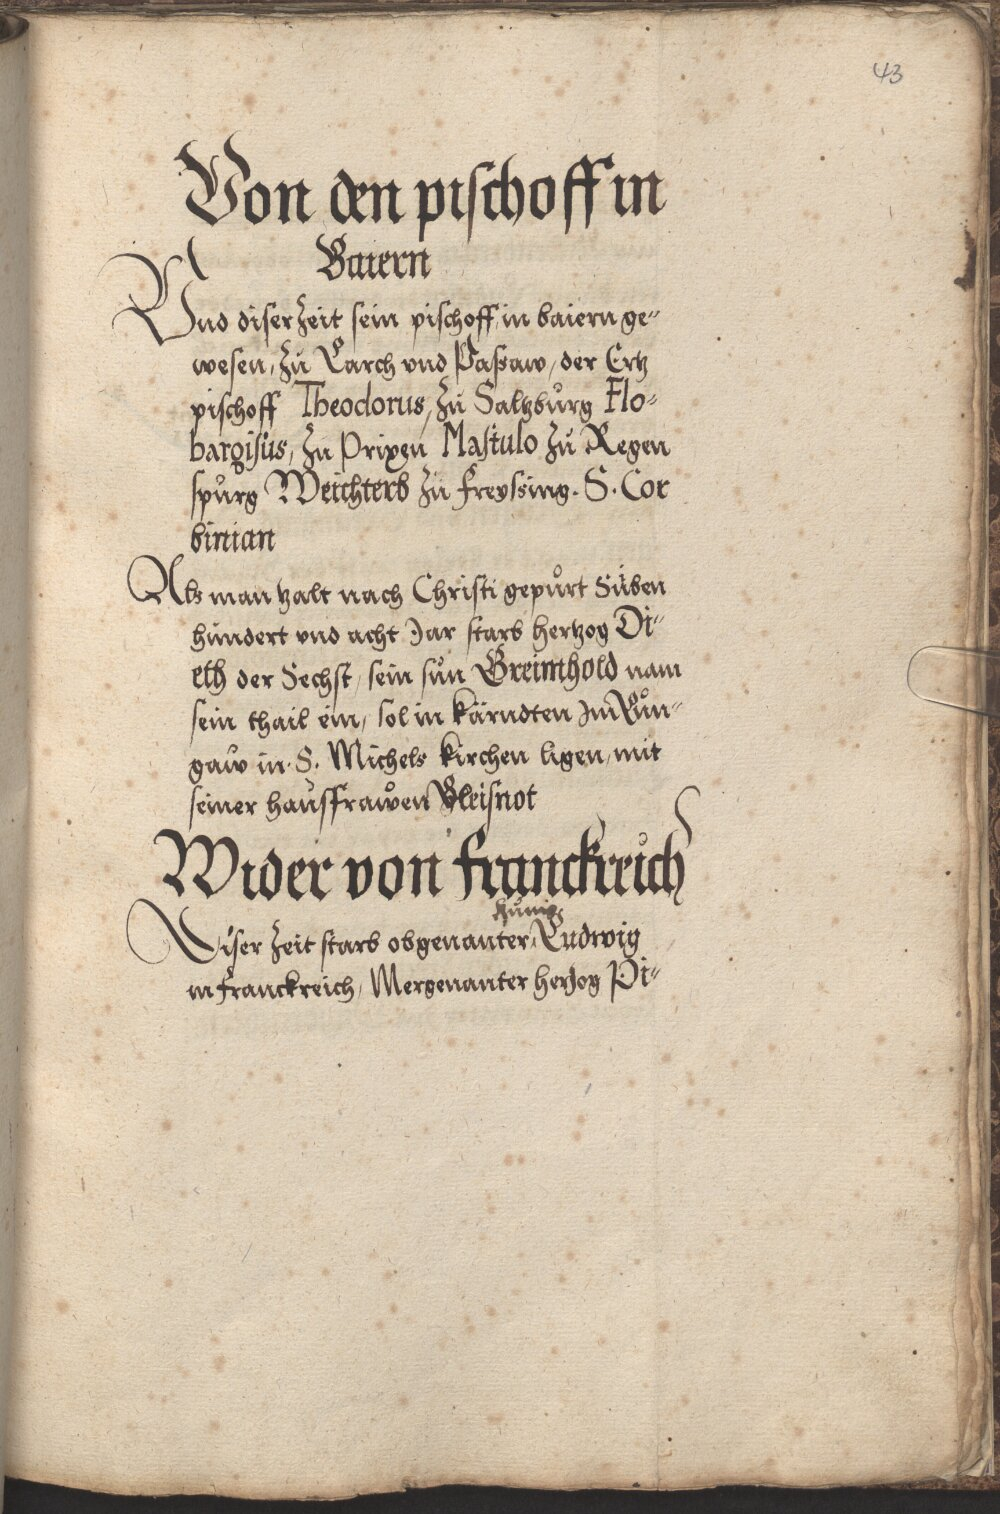 43
Von den pischoff in
Baiern
Vnd diser zeit sein pischoff in baiern ge-
wesen, zů Larch vnd Passaw, der Ertz
pischoff Theodorus, zů Saltzbůrg Flo-
bargisus, zů Prixen Mastulo zů Regen
spůrg Weichterb zů freyssing. S. Cor
binian
Als man tzalt nach Christi gepůrt Süben
hundert vnd acht Jar starb hertzog Di-
eth der Sechst, sein sůn Greimhold nam
sein thail ein, sol in kärndten Im Lůn-
gaw in S. Michels kirchen ligen, mit
seiner hausfrawen Gleisnot
Wider von franckreich
künig
Diser zeit starb obgenanter Ludwig
in franckreich, Mergenanter herzog Pi-